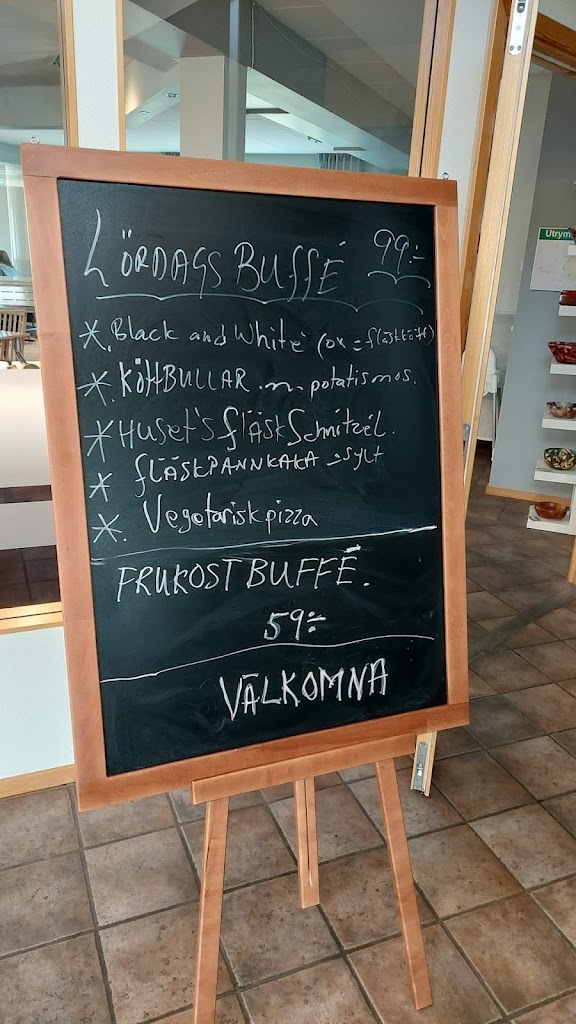 LÖRDAGS BUFFÉ 99:-
*. Black and White (ox = fläskkött)
*. KÖTTBULLAR .m. potatismos.
* HUSET'S fläsk Schnitzél.
* fLÄSKPANNKAKA - sylt
*. Vegetarisk pizza
FRUKOST BUFFÉ.
59:-
VÄLKOMNA
Utrym